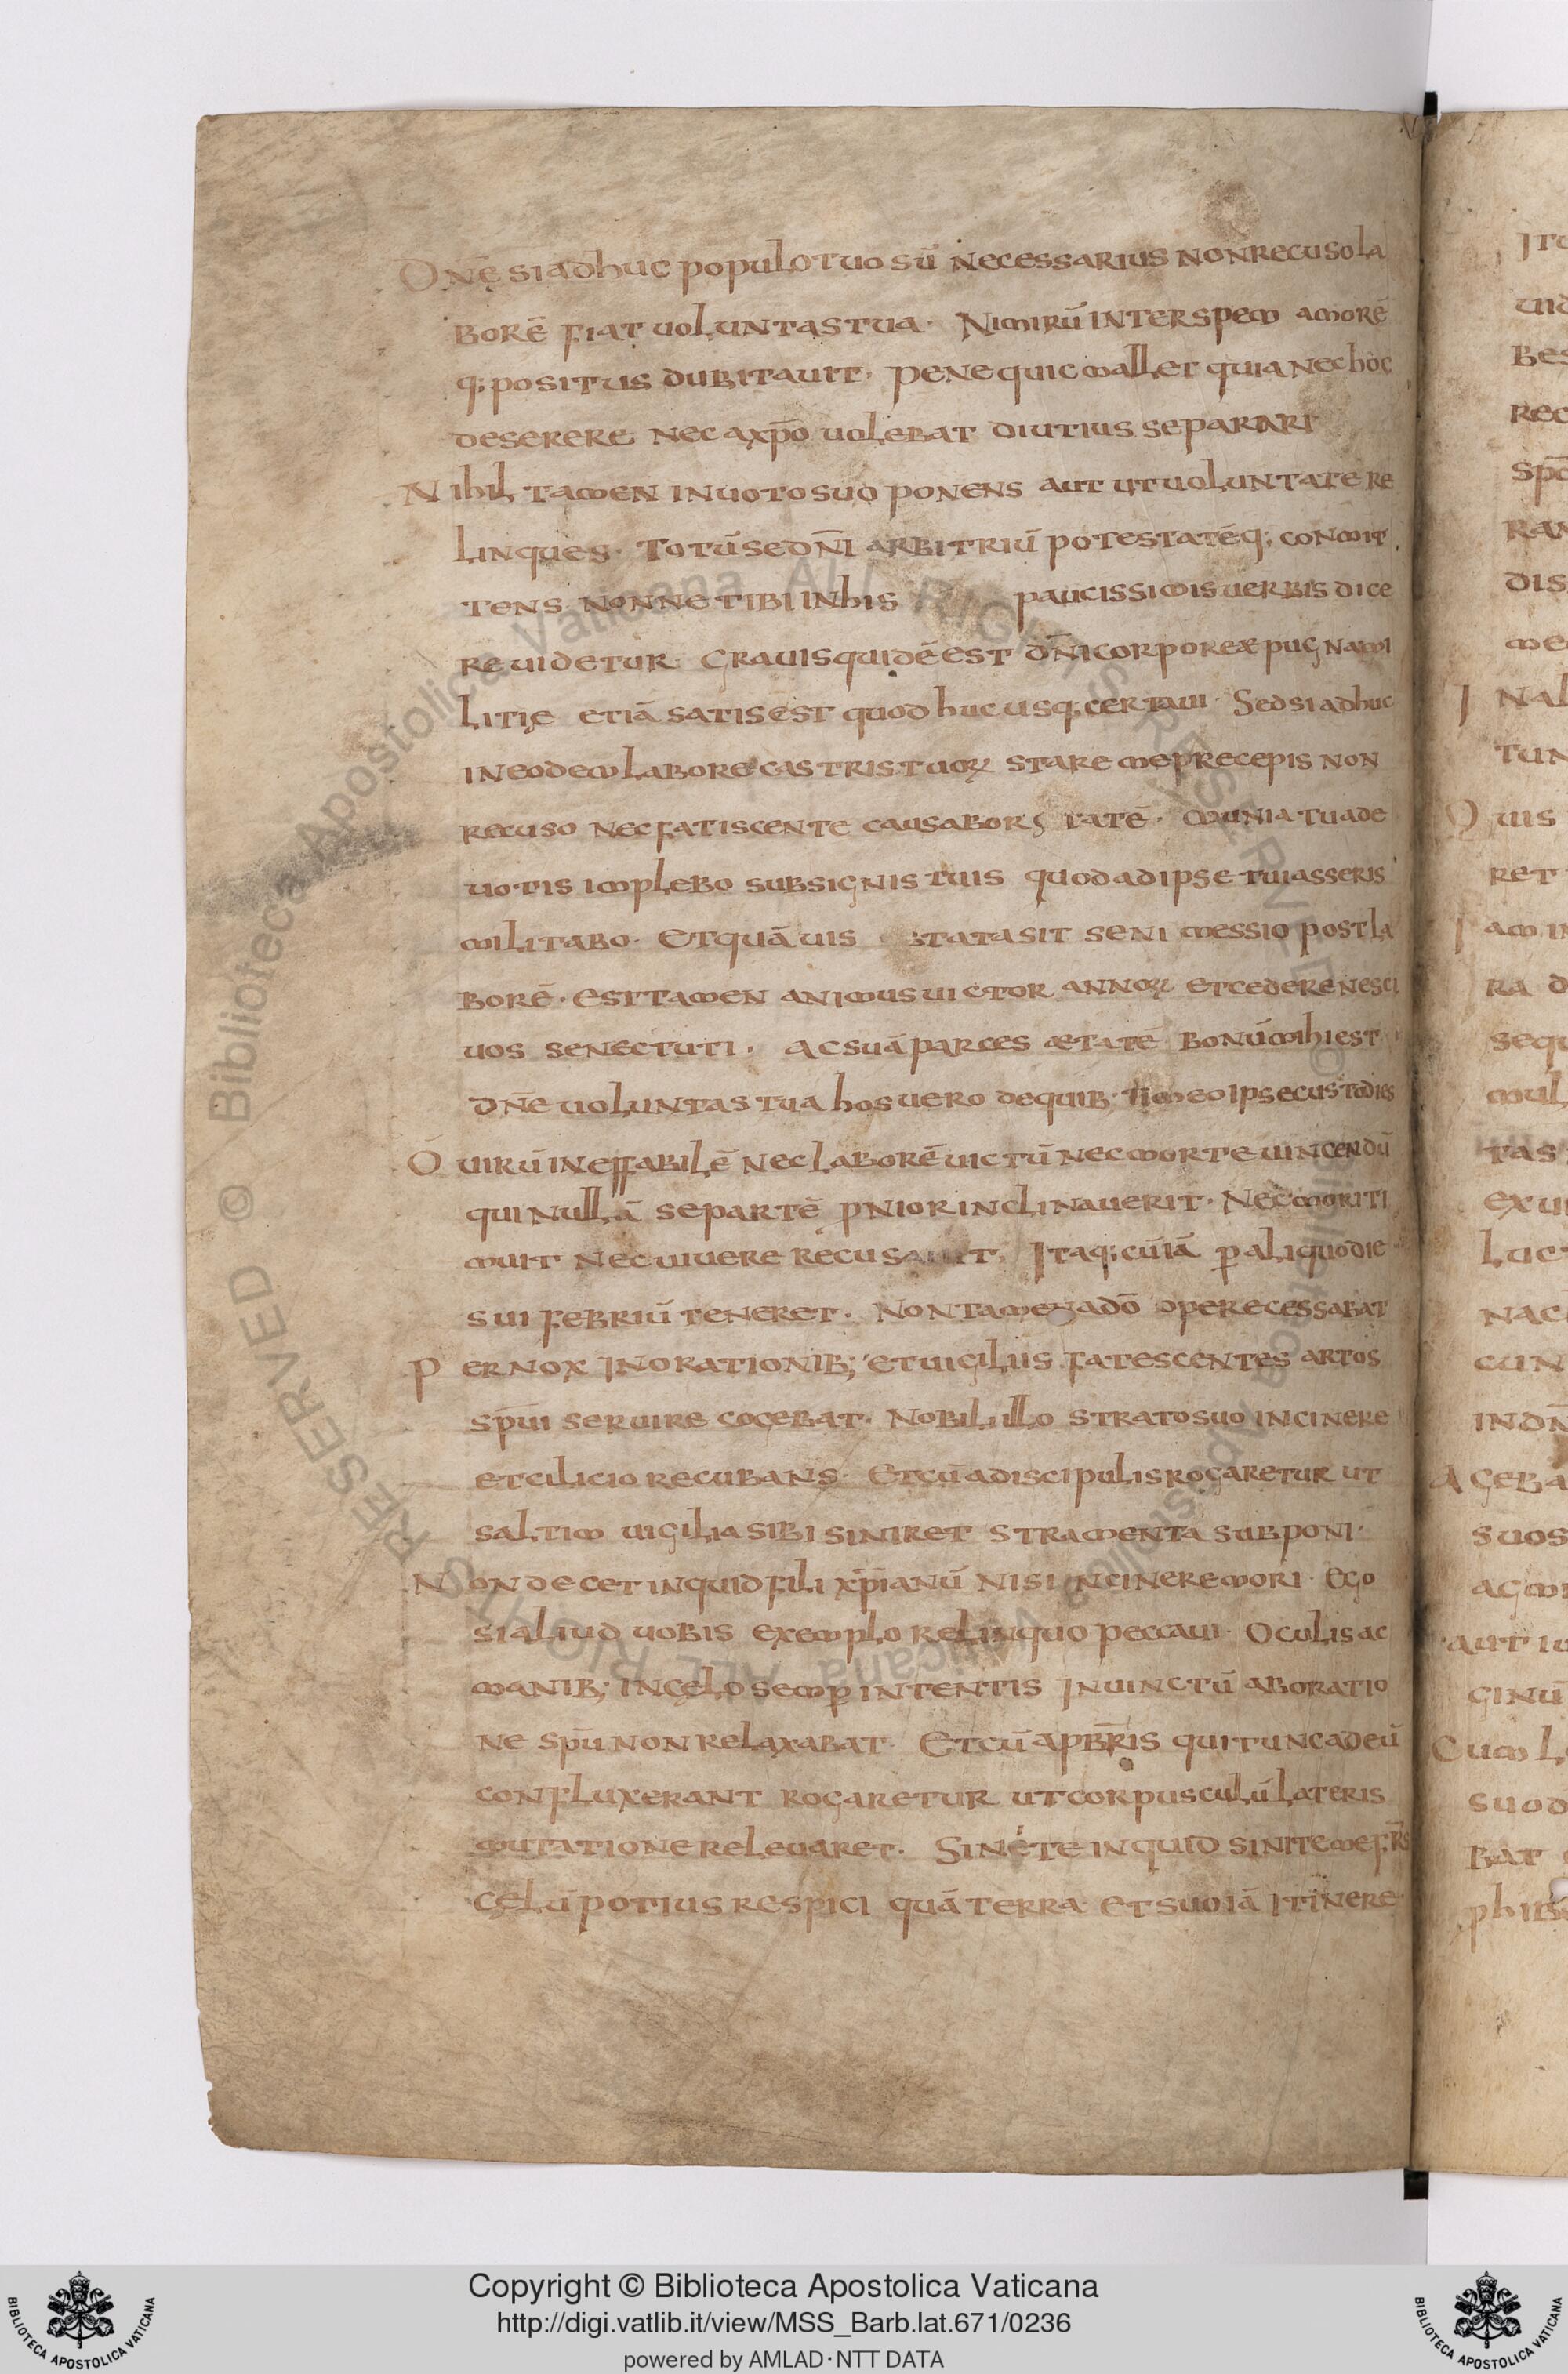 Dnę si adhuc populo tuo sū necessarius non recuso la
borē fiat uoluntas tua · Nimirū inter spem amorē
q; positus dubitauit · pene quic mallet quia nec hoc
deserere nec a xp̄o uolebat diutius separari
Nihil tamen in uoto suo ponens aut ut uoluntate re
linques · Totū se dn̄i arbitriū potestatēq; conmit
tens nonne tibi in his paucissimis uerbis dice
re uidetur Grauis quidē est dn̄i corporex pugna mi
litię etiā satis est quod huc usq; certaui · Sed si adhuc
in eodem labore castris tuoꝝ stare me precepis non
recuso nec fatiscente causabor tatē · munia tua de
uotis implebo sub signis tuis quo dad ipse tui asseris
militabo · Et quā uis tata sit seni messio post la
borē · est tamen animus uictor annoꝝ et cedere nesci
uos senectuti · Ac suā parces ætatē bonū mihi est
dn̄e uoluntas tua hos uero de quib· timeo ipse custodies
O uirū ineffabilē nec laborē uictū nec morte uincendū
qui nullā se partē pnior inclinauerit · Nec mori ti
muit nec uiuere recusauit Itaq; cū iā ꝑ aliquo die
sui febriū teneret · Non tamen a dō opere cessabat
Pernox in orationib; et uigiliis fatescentes artos
sp̄ui seruire cogebat · Nobili illo strato suo in cinere
et cilicio recubans · Et cū a discipulis rogaretur ut
saltim uigilia sibi siniret stramenta subponi ·
Non decet inquid fili xp̄ianū nisi in cinere mori · Ego
si aliud uobis exemplo relinquo peccaui · Oculis ac
manib; in cęlo semꝑ intentis inuinctū ab oratio
ne sp̄u non relaxabat · Et cū a pbr̄is qui tunc ad eū
confluxerant rogaretur ut corpusculū lateris
mutatione releuaret · Sinete inquid sinite me fr̄s
cęlū potius respici quā terra et suo iā itinere
Copyright © Biblioteca Apostolica Vaticana
http://digi.vatlib.it/view/MSS_Barb.lat.671/0236
powered by AMLAD·NTT DATA